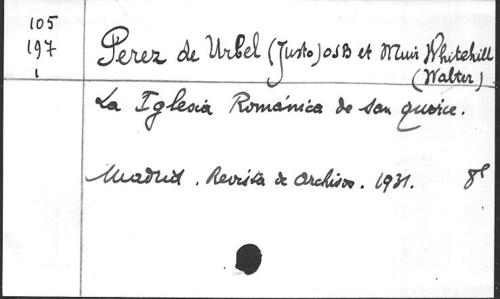 105
197
1
Perez de Urbel (Justo) OSB et Muir Whitehill
(Walter)
La Iglesia Románica de san Quirce.
Madrid. Revista de Archivos. 1931. 8º